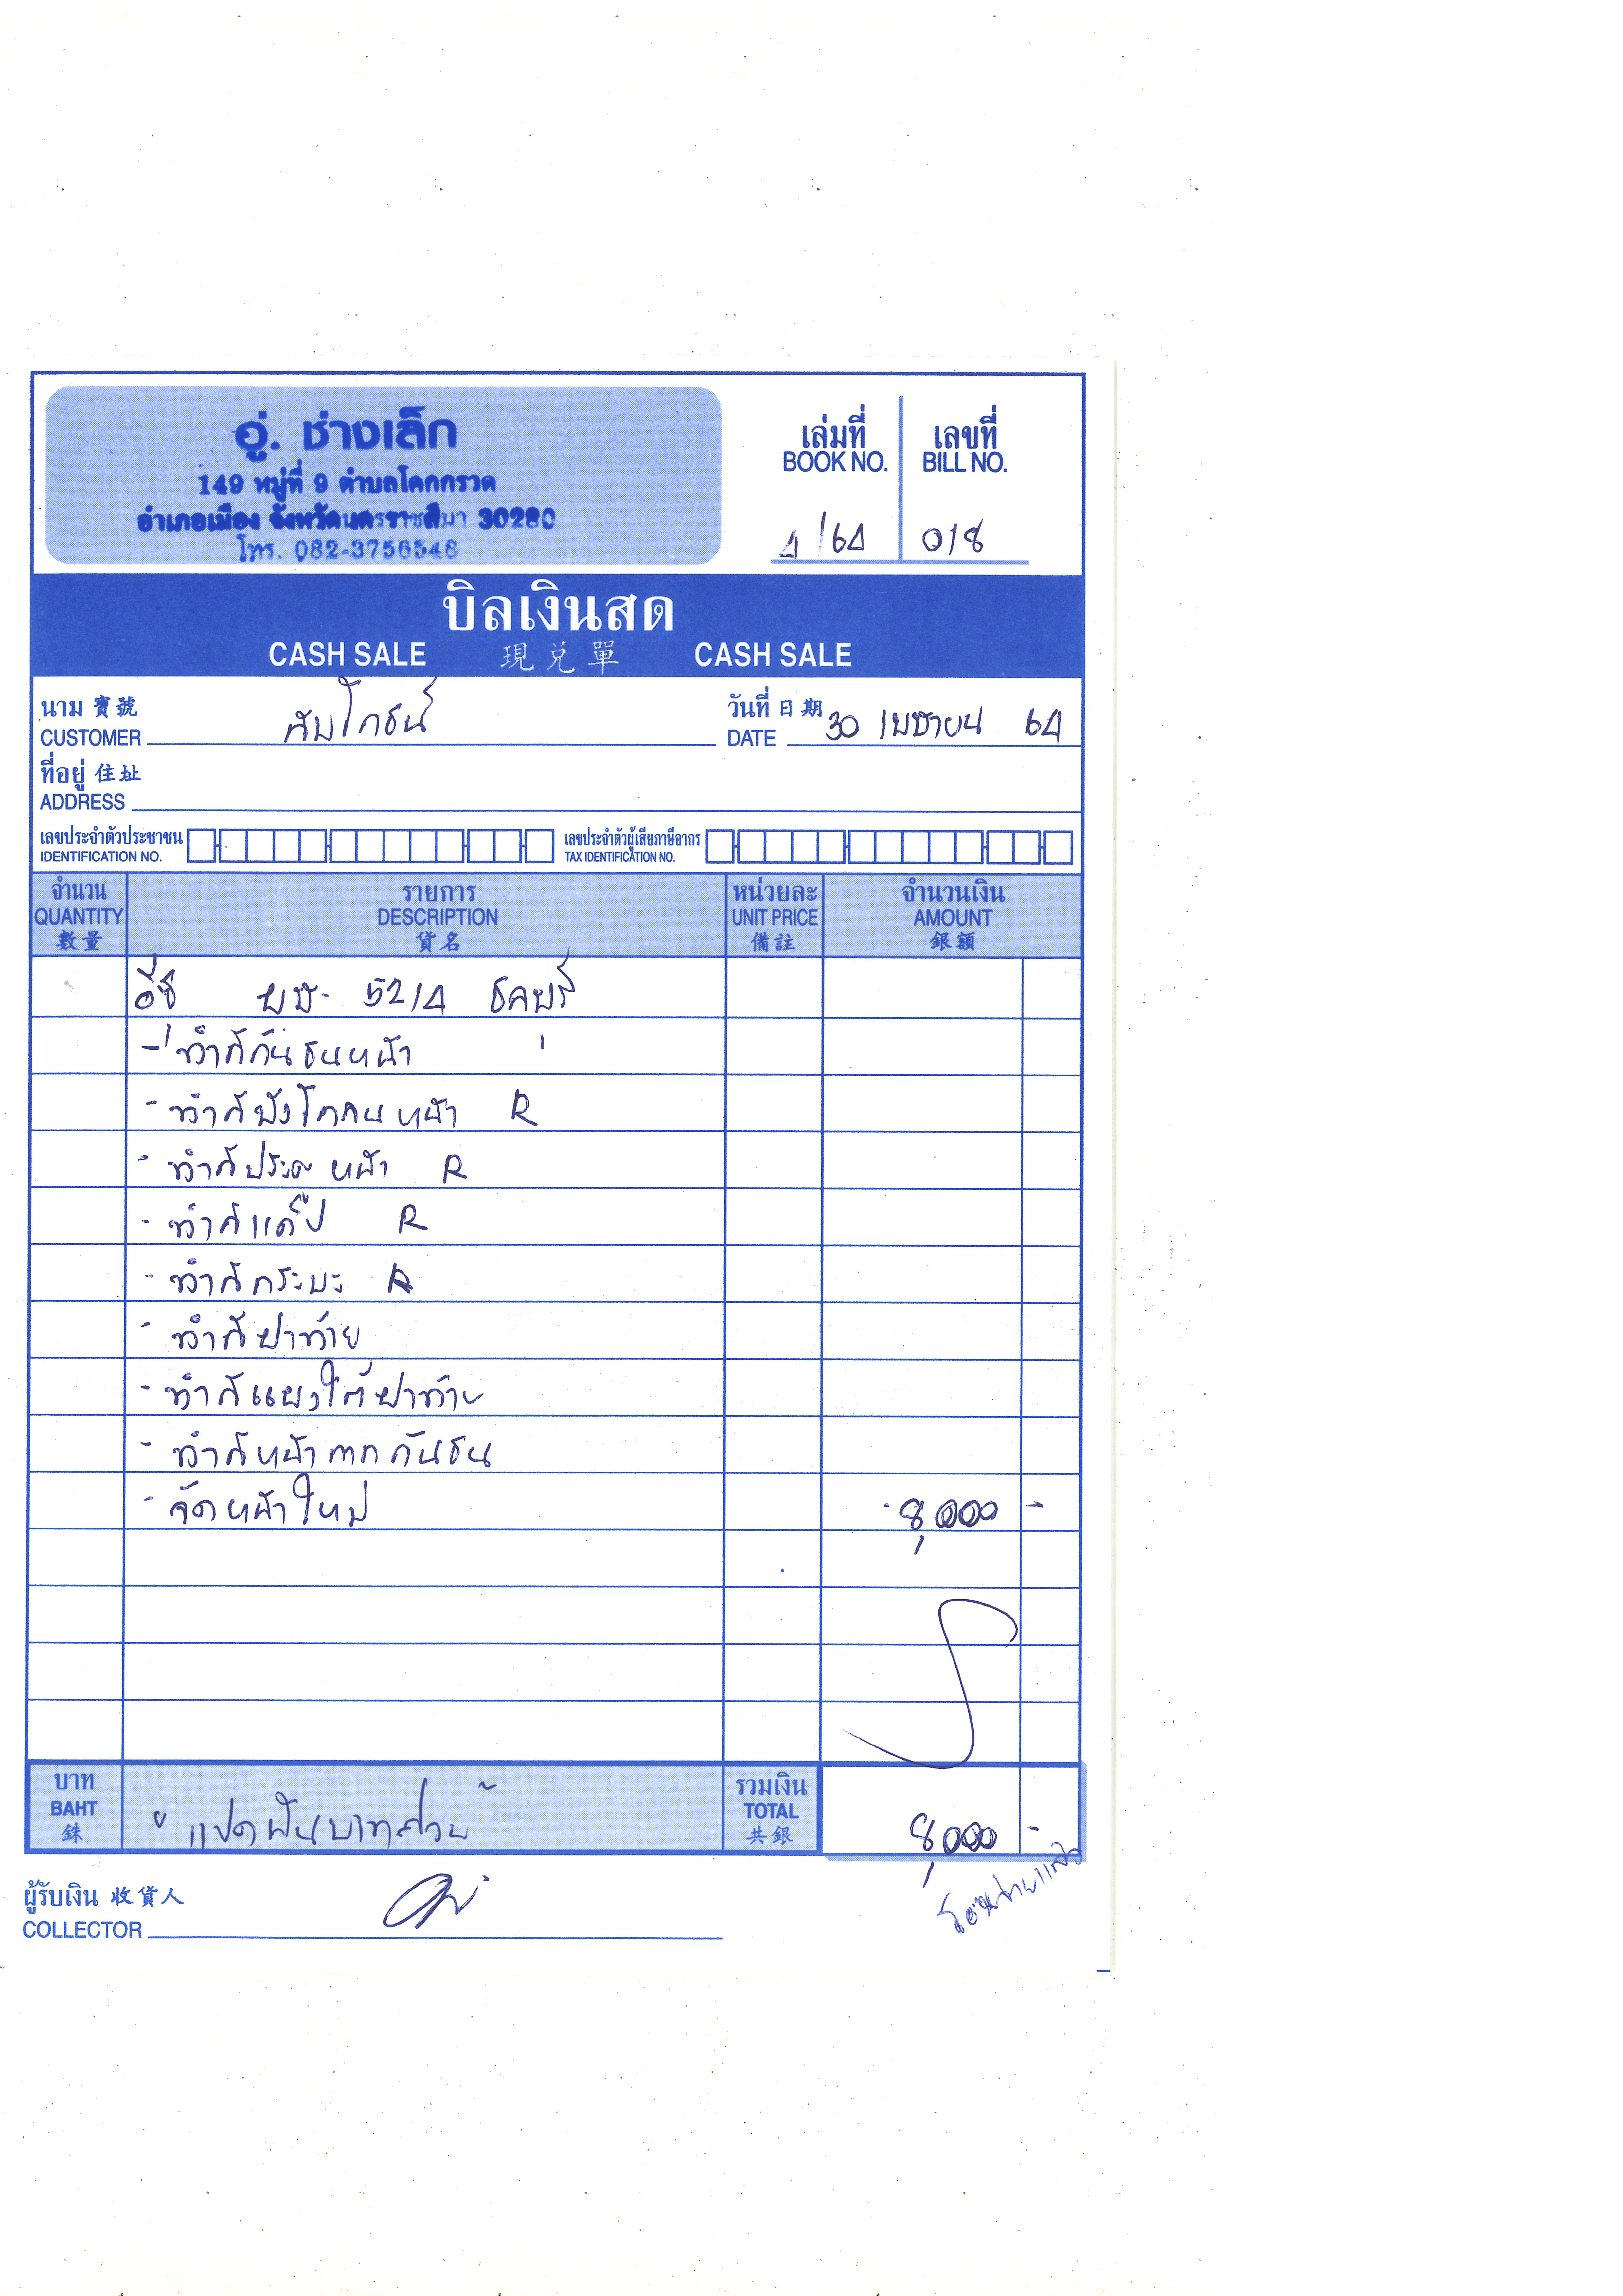 อู่. ช่างเล็ก
149 หมู่ที่ 9 ตำบลโคกกรวด
อำเภอเมือง จังหวัดนครราชสีมา 30280
โทร. 082-3756548
เล่มที่ เลขที่
BOOK NO. BILL NO.
4/64 018
บิลเงินสด
CASH SALE 現兌單 CASH SALE
นาม 寶號 วันที่ 日期 30 เมษายน 64
CUSTOMER DATE
ที่อยู่ 住址
ADDRESS
เลขประจำตัวประชาชน เลขประจำตัวผู้เสียภาษีอากร
IDENTIFICATION NO. TAX IDENTIFICATION NO.
จำนวน รายการ หน่วยละ จำนวนเงิน
QUANTITY DESCRIPTION UNIT PRICE AMOUNT
數量 貨名 備註 銀額
5214 ชลบุรี
- ทำสีกันชนหน้า
- ทำสีบังโคลนหน้า R
- ทำสีประตูหน้า R
- ทำสีแค๊ป R
- ทำสีกระบะ R
- ทำสีฝาท้าย
- ทำสีแผงใต้ฝาท้าย
- ทำสีหน้ากากกันชน
- จัดหน้าใหม่ 8,000 -
บาท รวมเงิน
BAHT " แปดพันบาทถ้วน " TOTAL 8,000 -
銖 共銀
โอนจ่ายแล้ว
ผู้รับเงิน 收貨人
COLLECTOR